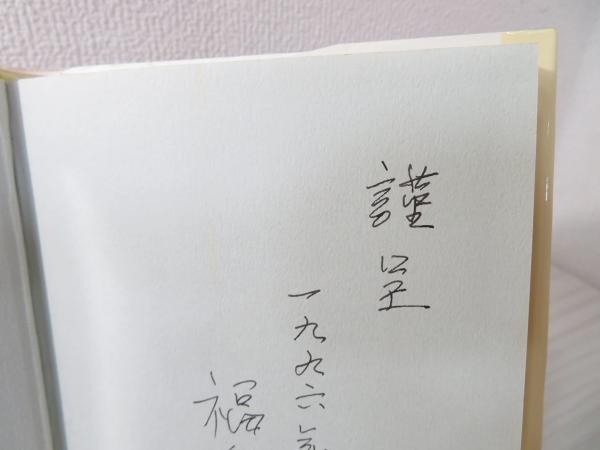 謹呈
一九九六年
福